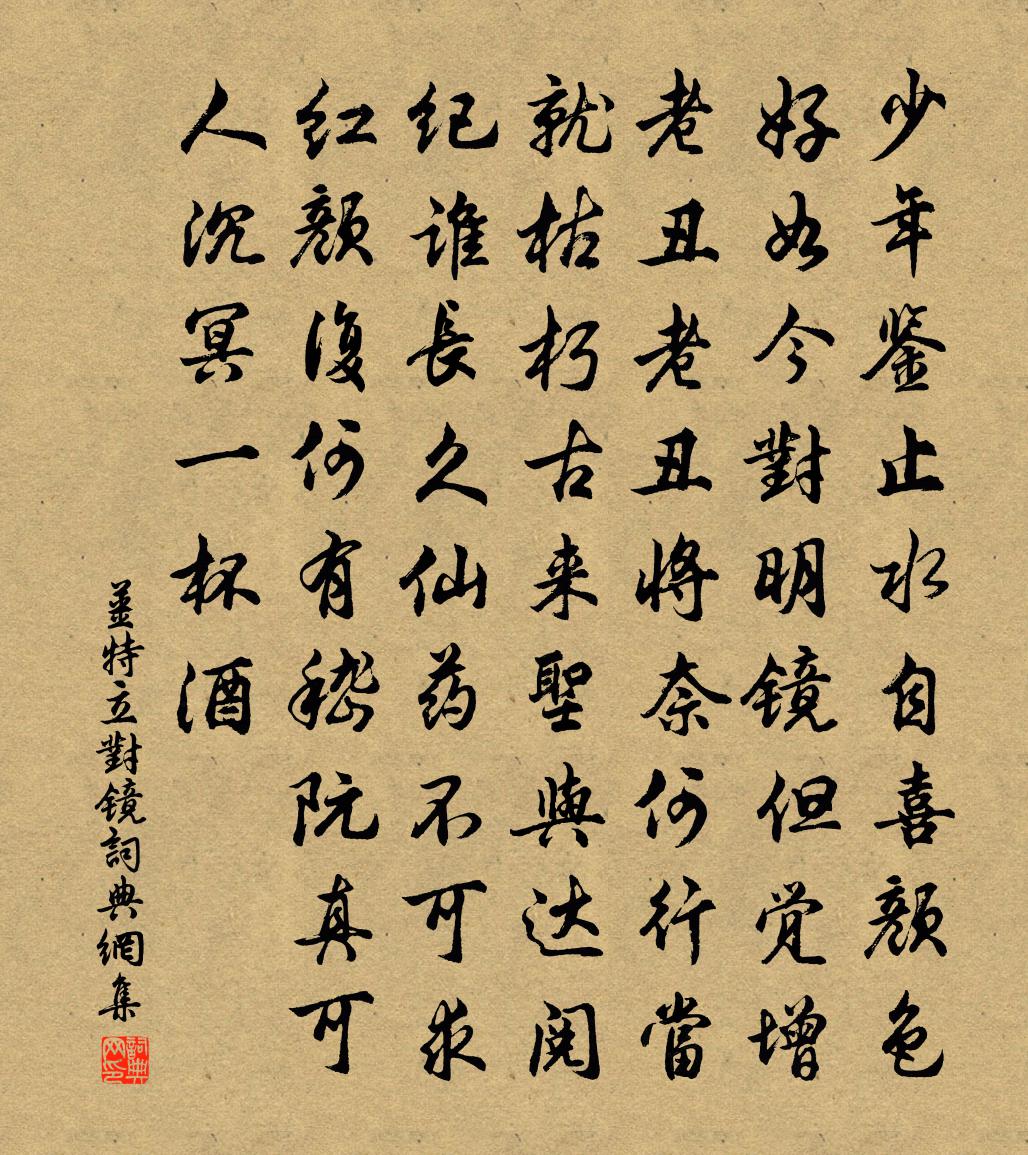 少年鉴止水自喜颜色
好如今對明镜但觉增
老丑老丑將奈何行當
就枯朽古来聖與达阅
纪谁長久仙药不可求
红颜復何有嵇阮真可
人沉冥一杯酒
姜特立對镜詞典網集
詞典网印